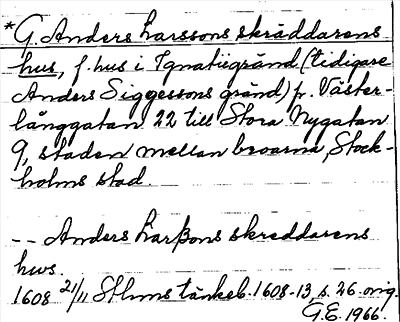 * G. Anders Larssons skräddarens
hus, f. hus i Ignatiigränd (tidigare
Anders Siggessons gränd) fr. Väster-
långgatan 22 till Stora Nygatan
9, staden mellan broarna, Stock-
holms stad.
-- Anders Larßons skreddarens
hws.
1608 21/11 Sthms tänkeb. 1608-13, s. 26 orig.
G.E. 1966.